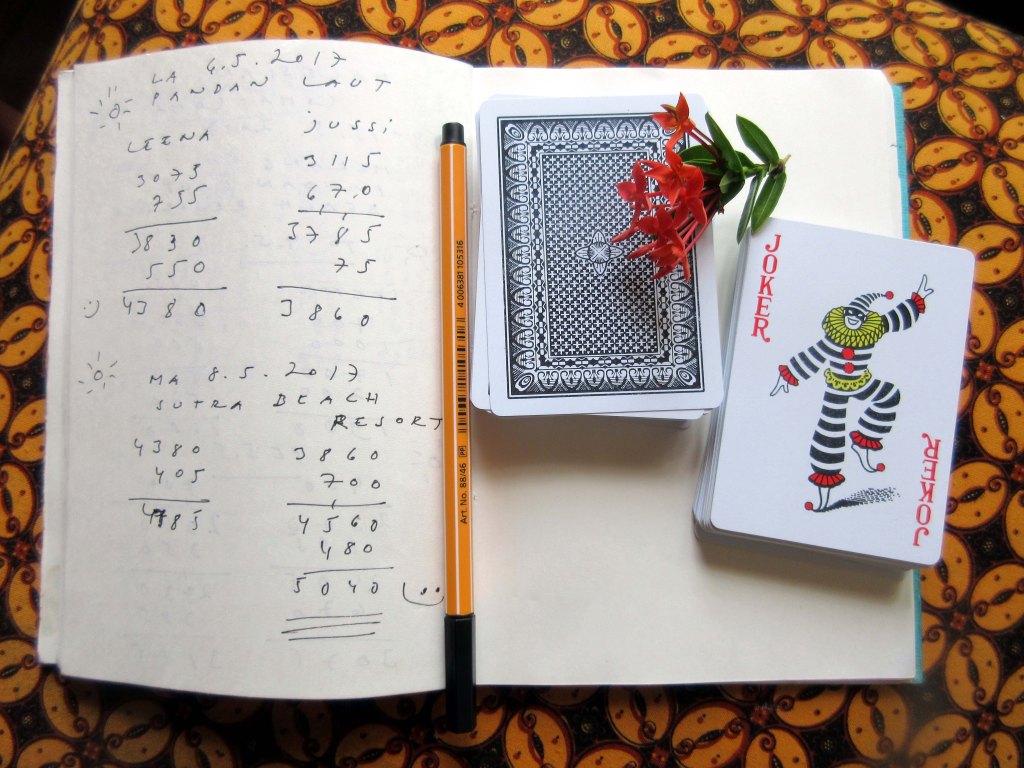 LA 6.5.2017
PANDAN LAUT
LEENA jussi
3075 3115
755 670
3830 3785
550 75
:) 4380 3860
MA 8.5.2017
SUTRA BEACH
RESORT
4380 3860
405 700
4785 4560
480
5040
Art. No. 88/46 PP 4 006381 105316
JOKER
JOKER